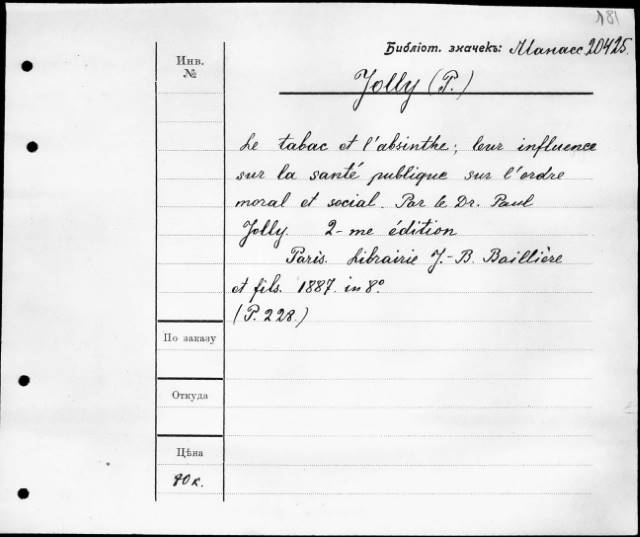 181
Библіот. значекъ: Манасс 20425.
Инв.
№
Jolly (P.)
Le tabac et l'absinthe; leur influence
sur la santé publique sur l'ordre
moral et social. Par le Dr. Paul
Jolly. 2-me édition
Paris. Librairie J.-B. Baillière
et fils. 1887. in 8°
(P. 228.)
По заказу
Откуда
Цѣна
90к.